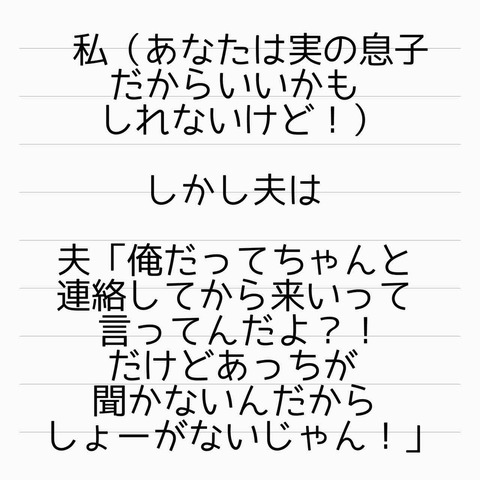 私（あなたは実の息子
だからいいかも
しれないけど！）
しかし夫は
夫「俺だってちゃんと
連絡してから来いって
言ってんだよ？！
だけどあっちが
聞かないんだから
しょーがないじゃん！」